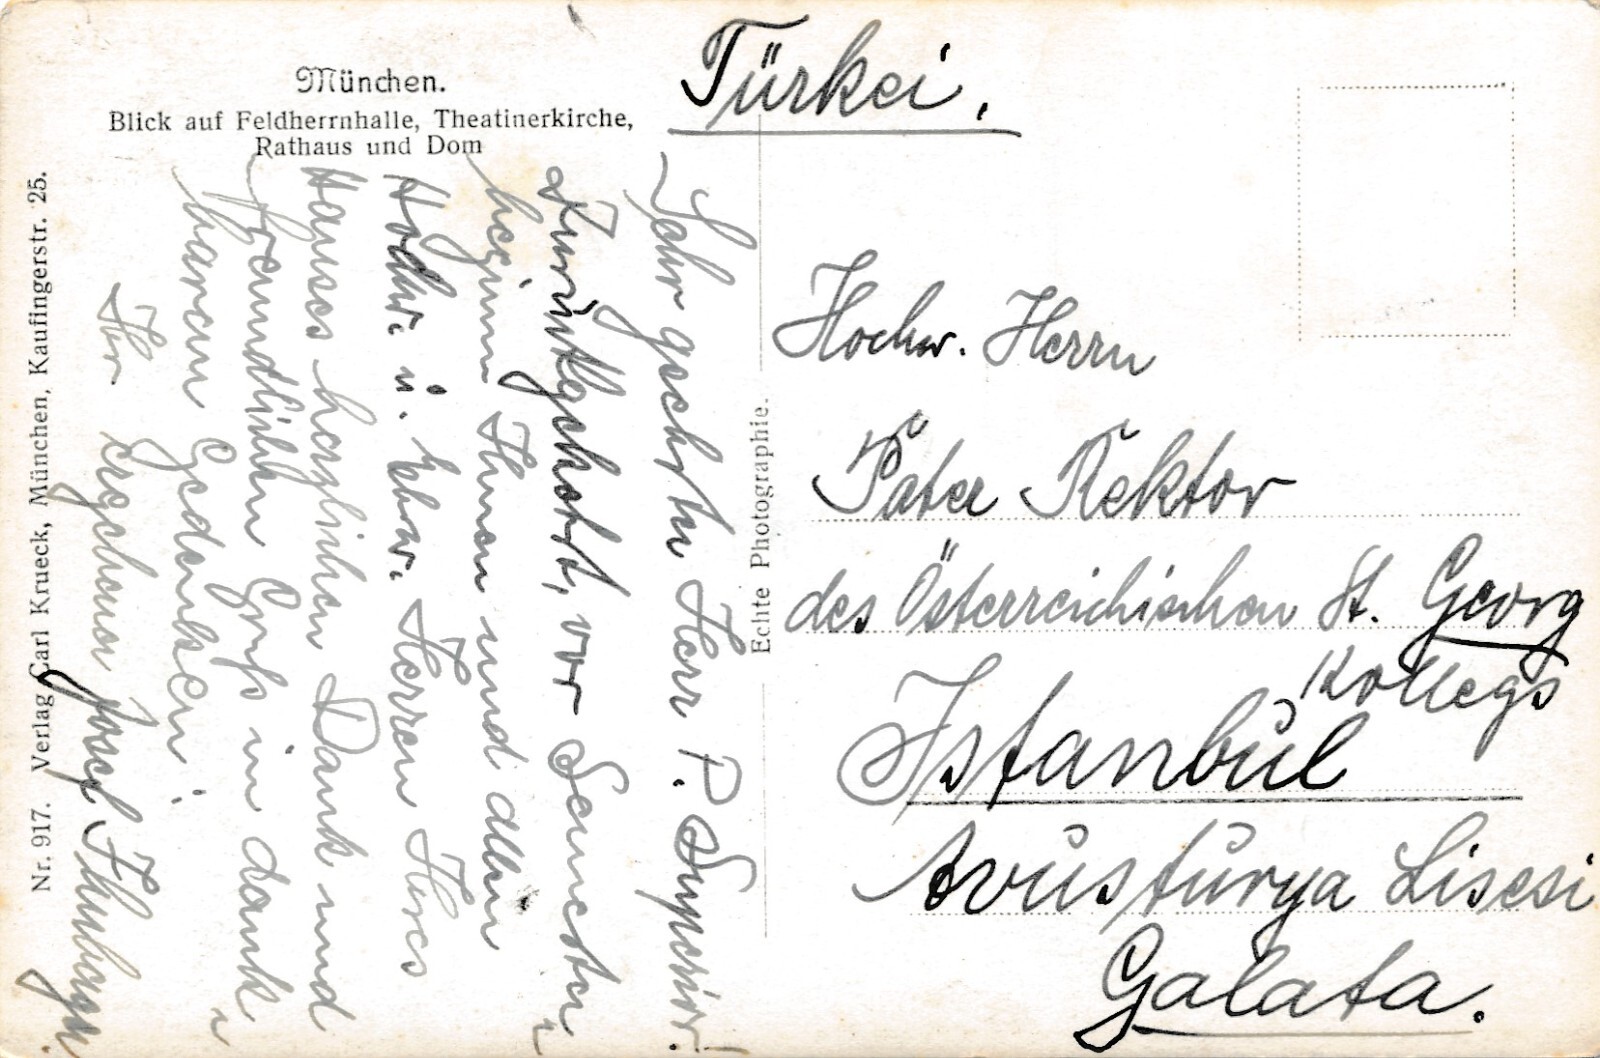 München.
Blick auf Feldherrnhalle, Theatinerkirche,
Rathaus und Dom
Sehr geehrter Herr P. Superior!
Zurückgekehrt, vor Semester-
beginn Ihnen und allen
Hochw. u. Ehrw. Herren Ihres
Hauses herzlichen Dank und
freundlichen Gruß in dank-
barem Gedenken!
Ihr ergebener Josef
Nr. 917. Verlag Carl Krueck, München, Kaufingerstr. 25.
Echte Photographie.
Türkei.
Hochw. Herrn
Pater Rektor
des Österreichischen St. Georg
Kollegs
Istanbul
Avusturya Lisesi
Galata.